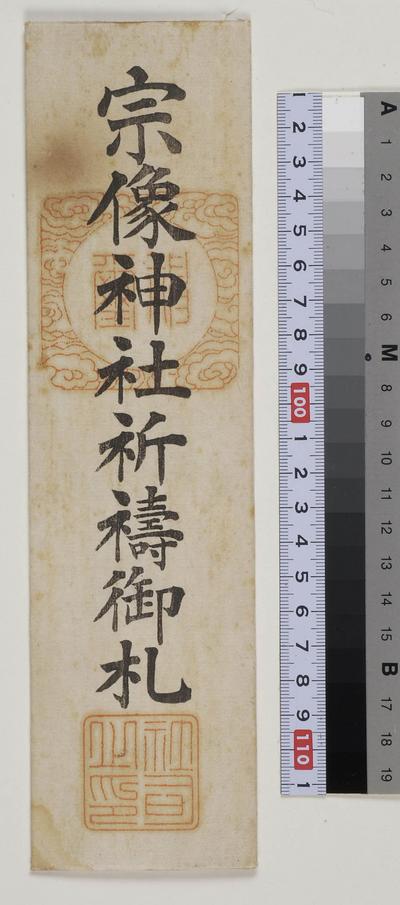 宗像神社祈禱御札
社司之印
2
3
4
5
6
7
8
9
100
1
2
3
4
5
6
7
8
9
110
1
A
1
2
3
4
5
6
M
8
9
10
11
12
13
14
15
B
17
18
19